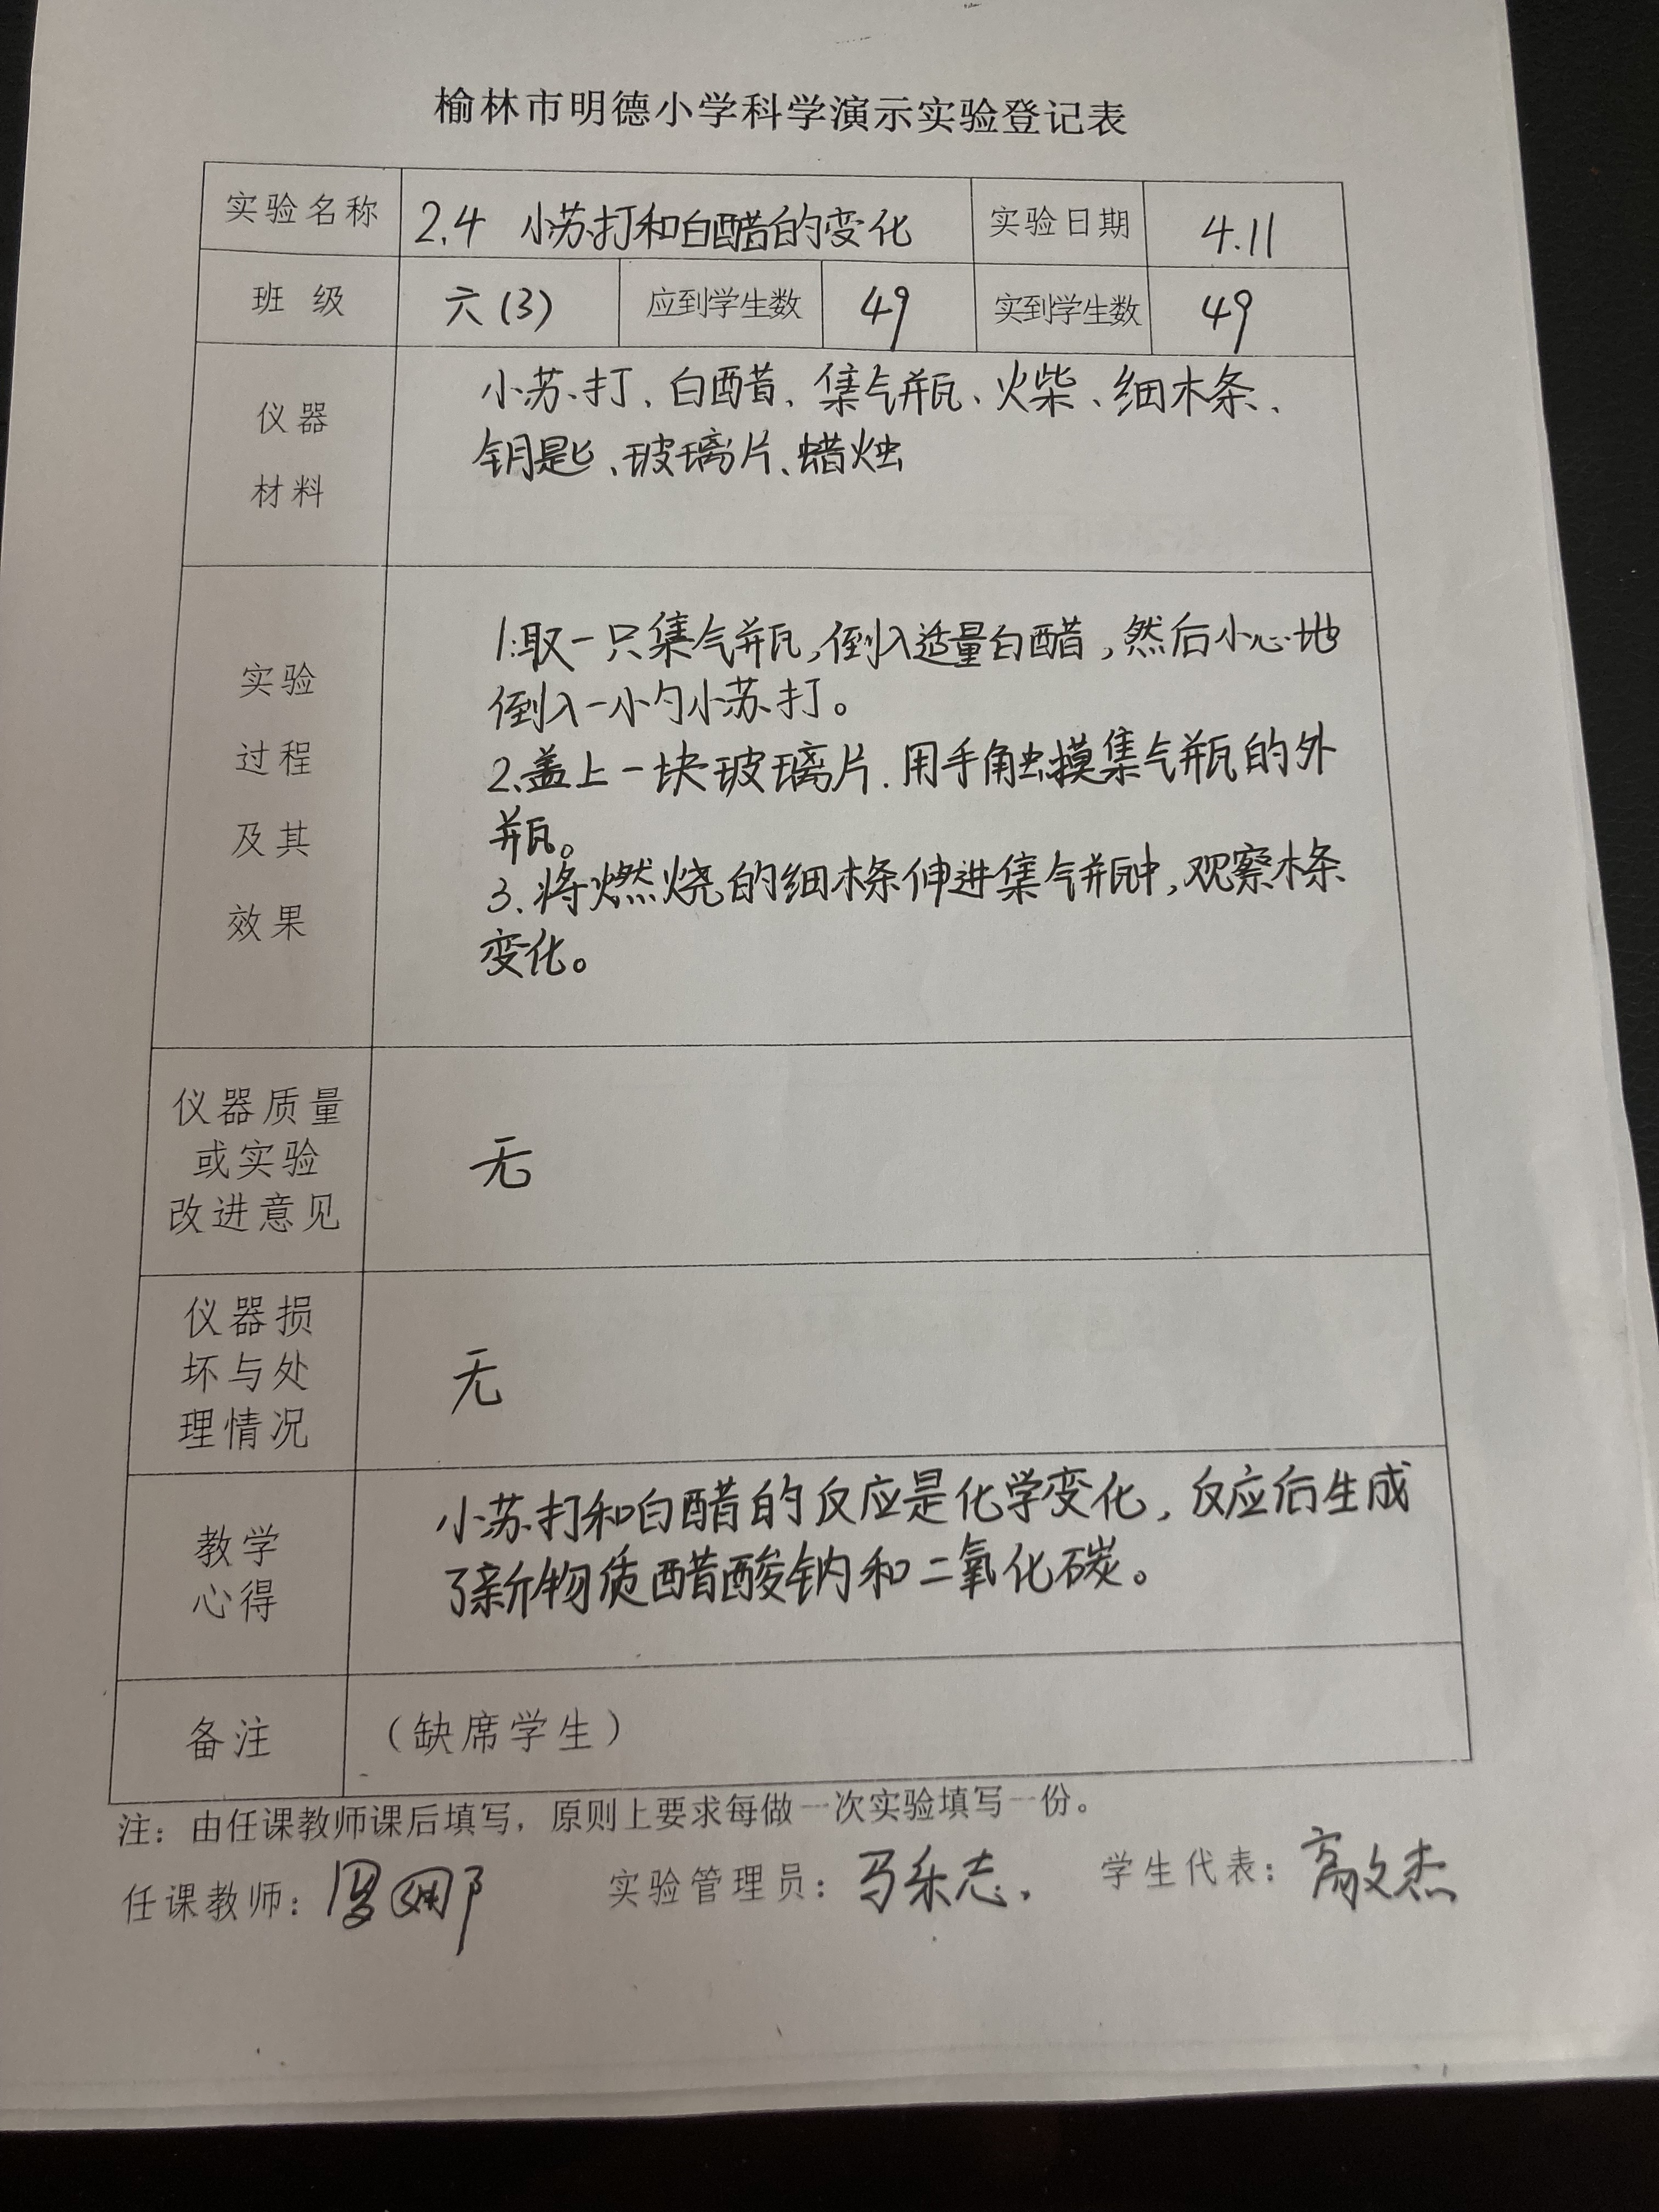 榆林市明德小学科学演示实验登记表
实验名称 2.4 小苏打和白醋的变化 实验日期 4.11
班级 六(3) 应到学生数 49 实到学生数 49
仪器
材料
小苏打、白醋、集气瓶、火柴、细木条、
钥匙、玻璃片、蜡烛
实验
过程
及其
效果
1.取一只集气瓶,倒入适量白醋,然后小心地
倒入一小勺小苏打。
2.盖上一块玻璃片.用手触摸集气瓶的外
瓶。
3.将燃烧的细木条伸进集气瓶中,观察木条
变化。
仪器质量
或实验
改进意见
无
仪器损
坏与处
理情况
无
教学
心得
小苏打和白醋的反应是化学变化,反应后生成
了新物质醋酸钠和二氧化碳。
备注 (缺席学生)
注:由任课教师课后填写,原则上要求每做一次实验填写一份。
任课教师: 实验管理员: 学生代表:高文杰